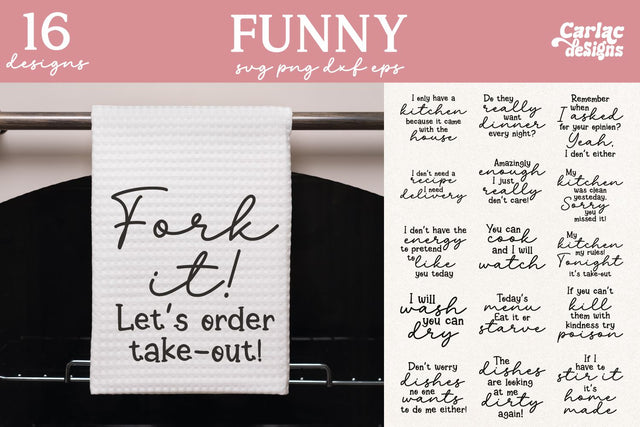 16
designs
FUNNY
svg png dxf eps
Carlac
designs
Fork
it!
Let's order
take-out!
I only have a
kitchen
because it came
with the
house
Do they
really
want
dinner
every night?
Remember
when
I asked
for your opinion?
Yeah,
I don't either
I don't need a
recipe
I need
delivery
Amazingly
enough
I just
really
don't care!
My
kitchen
was clean
yesteday.
Sorry
you
missed it!
I don't have the
energy
to pretend
to
like
you today
You can
cook
and I will
watch
My
kitchen
my rules!
Tonight
it's take-out
I will
wash
you can
dry
Today's
menu
Eat it or
starve
If you can't
kill
them with
kindness try
poison
Don't worry
dishes
no one
wants
to do me either!
The
dishes
are looking
at me
dirty
again!
If I
have to
stir it
it's
home
made